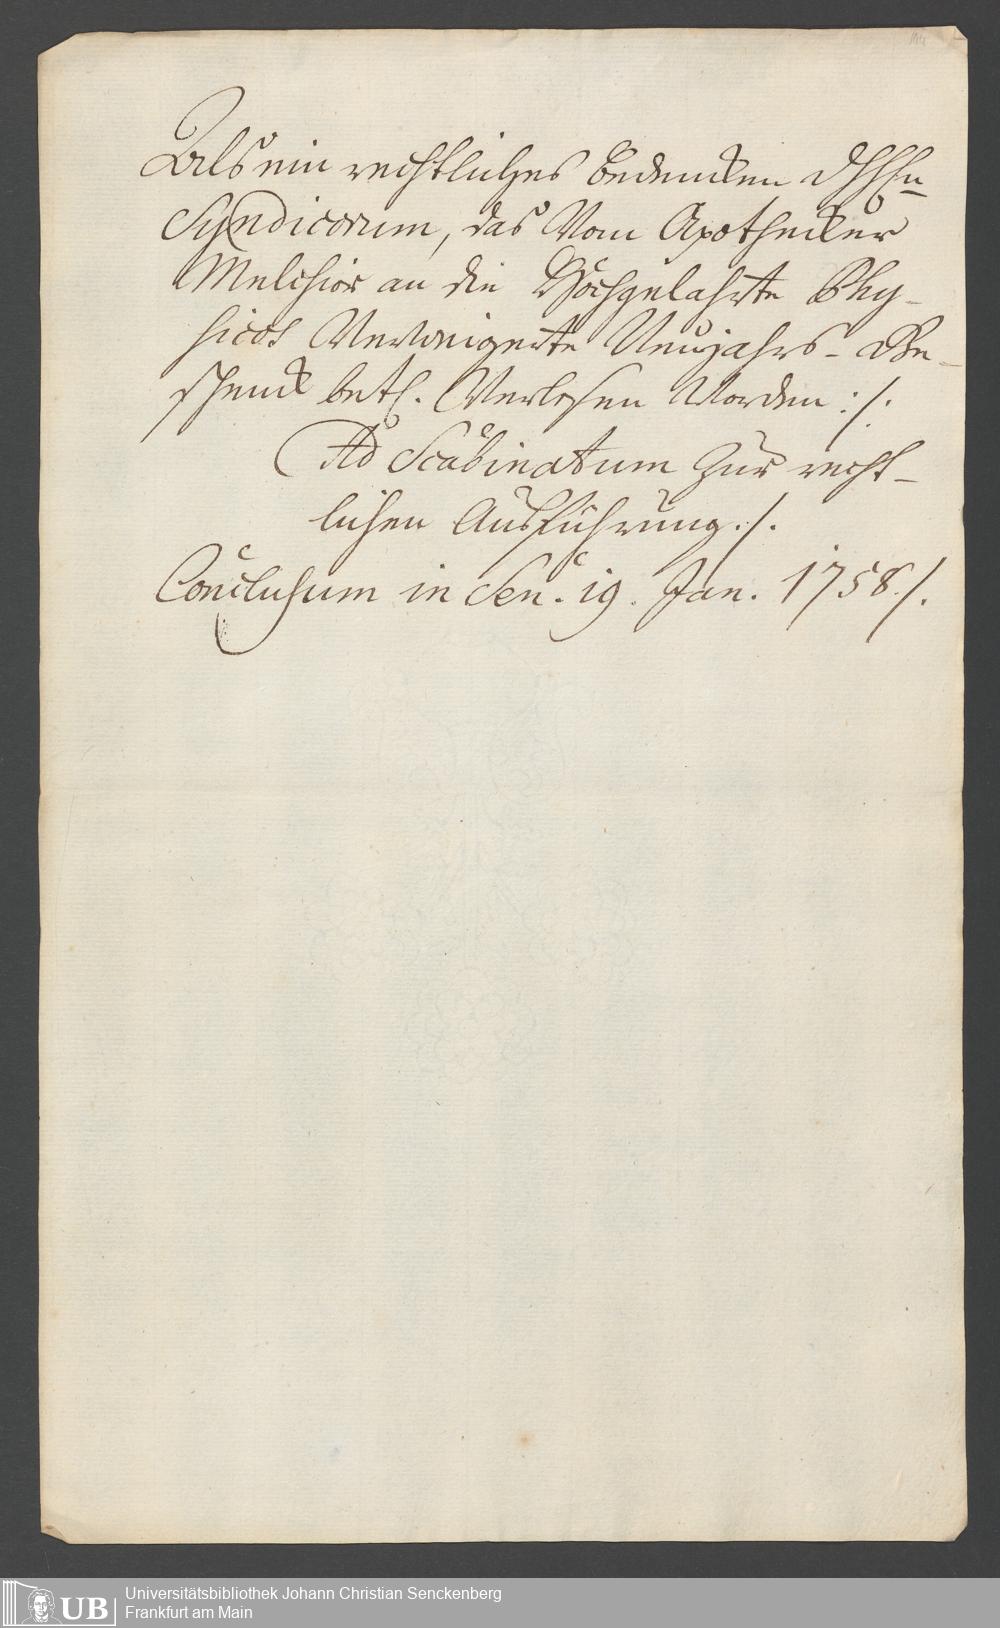 Als ein rechtliches Bedencken DHHn
Syndicorum, das Vom Apothecker
Melchior an die Hochgelahrte Phy-
sicos Verweigerte Neujahrs-Ge-
schenck betr. Verlesen Worden :/.
Ad Scabinatum Zur recht-
lichen Ausführung ./.
Conclusum in Sen. 19. Jan. 1758 ./.
Universitätsbibliothek Johann Christian Senckenberg
Frankfurt am Main
UB